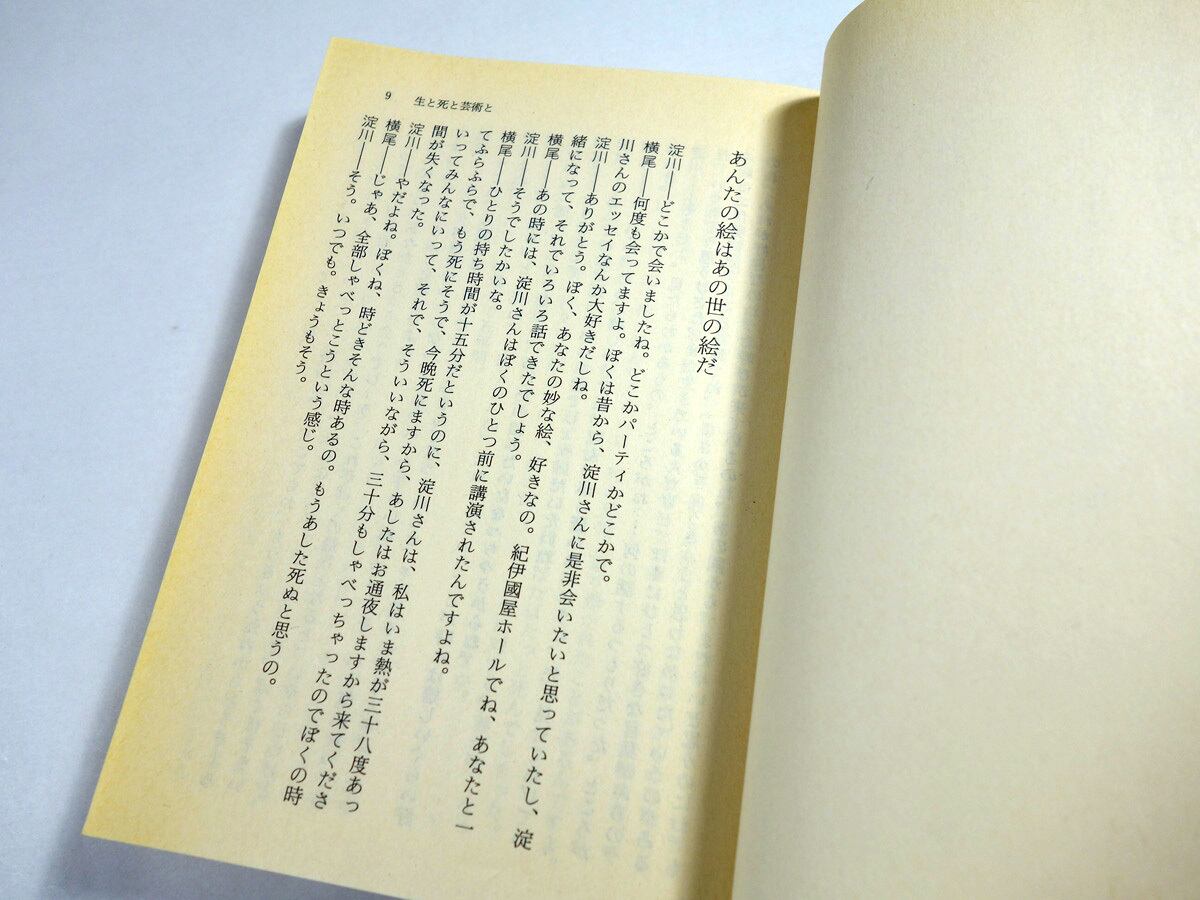 9　生と死と芸術と
あんたの絵はあの世の絵だ
淀川――どこかで会いましたね。どこかパーティかどこかで。
横尾――何度も会ってますよ。ぼくは昔から、淀川さんに是非会いたいと思っていたし、淀
川さんのエッセイなんか大好きだしね。
淀川――ありがとう。ぼく、あなたの妙な絵、好きなの。紀伊國屋ホールでね、あなたと一
緒になって、それでいろいろ話できたでしょう。
横尾――あの時には、淀川さんはぼくのひとつ前に講演されたんですよね。
淀川――そうでしたかいな。
横尾――ひとりの持ち時間が十五分だというのに、淀川さんは、私はいま熱が三十八度あっ
てふらふらで、もう死にそうで、今晩死にますから、あしたはお通夜しますから来てくださ
いってみんなにいって、それで、そういいながら、三十分もしゃべっちゃったのでぼくの時
間が失くなった。
淀川――やだよね。ぼくね、時どきそんな時あるの。もうあした死ぬと思うの。
横尾――じゃあ、全部しゃべっとこうという感じ。
淀川――そう。いつでも。きょうもそう。